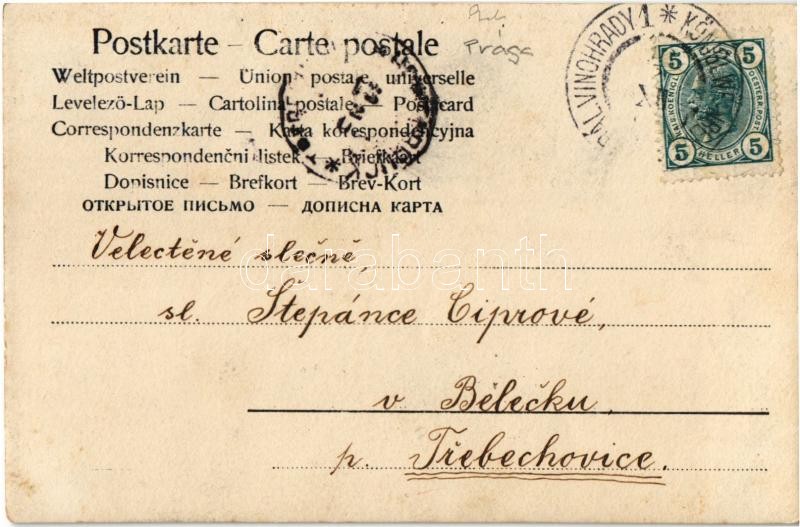 Prága
Postkarte – Carte postale
Weltpostverein — Union postale universelle
Levelező-Lap — Cartolina postale — Postcard
Correspondenzkarte — Karta korespondencyjna
Korrespondenční listek — Briefkaart
Dopisnice — Brefkort — Brev-Kort
ОТКРЫТОЕ ПИСЬМО — ДОПИСНА КАРТА
KRÁL. VINOHRADY 1 * KÖNIGL. WEINBERGE
5 5
5 HELLER 5
darabanth
Velectěné slečně,
sl. Štěpánce Ciprové,
v Bělečku,
p. Třebechovice.